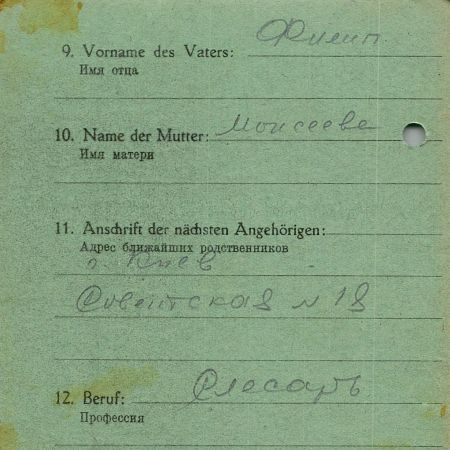 9. Vorname des Vaters: Филип
Имя отца
10. Name der Mutter: Моисеева
Имя матери
11. Anschrift der nächsten Angehörigen:
Адрес ближайших родственников
г. Киев
Советская № 18
12. Beruf: Слесарь
Профессия